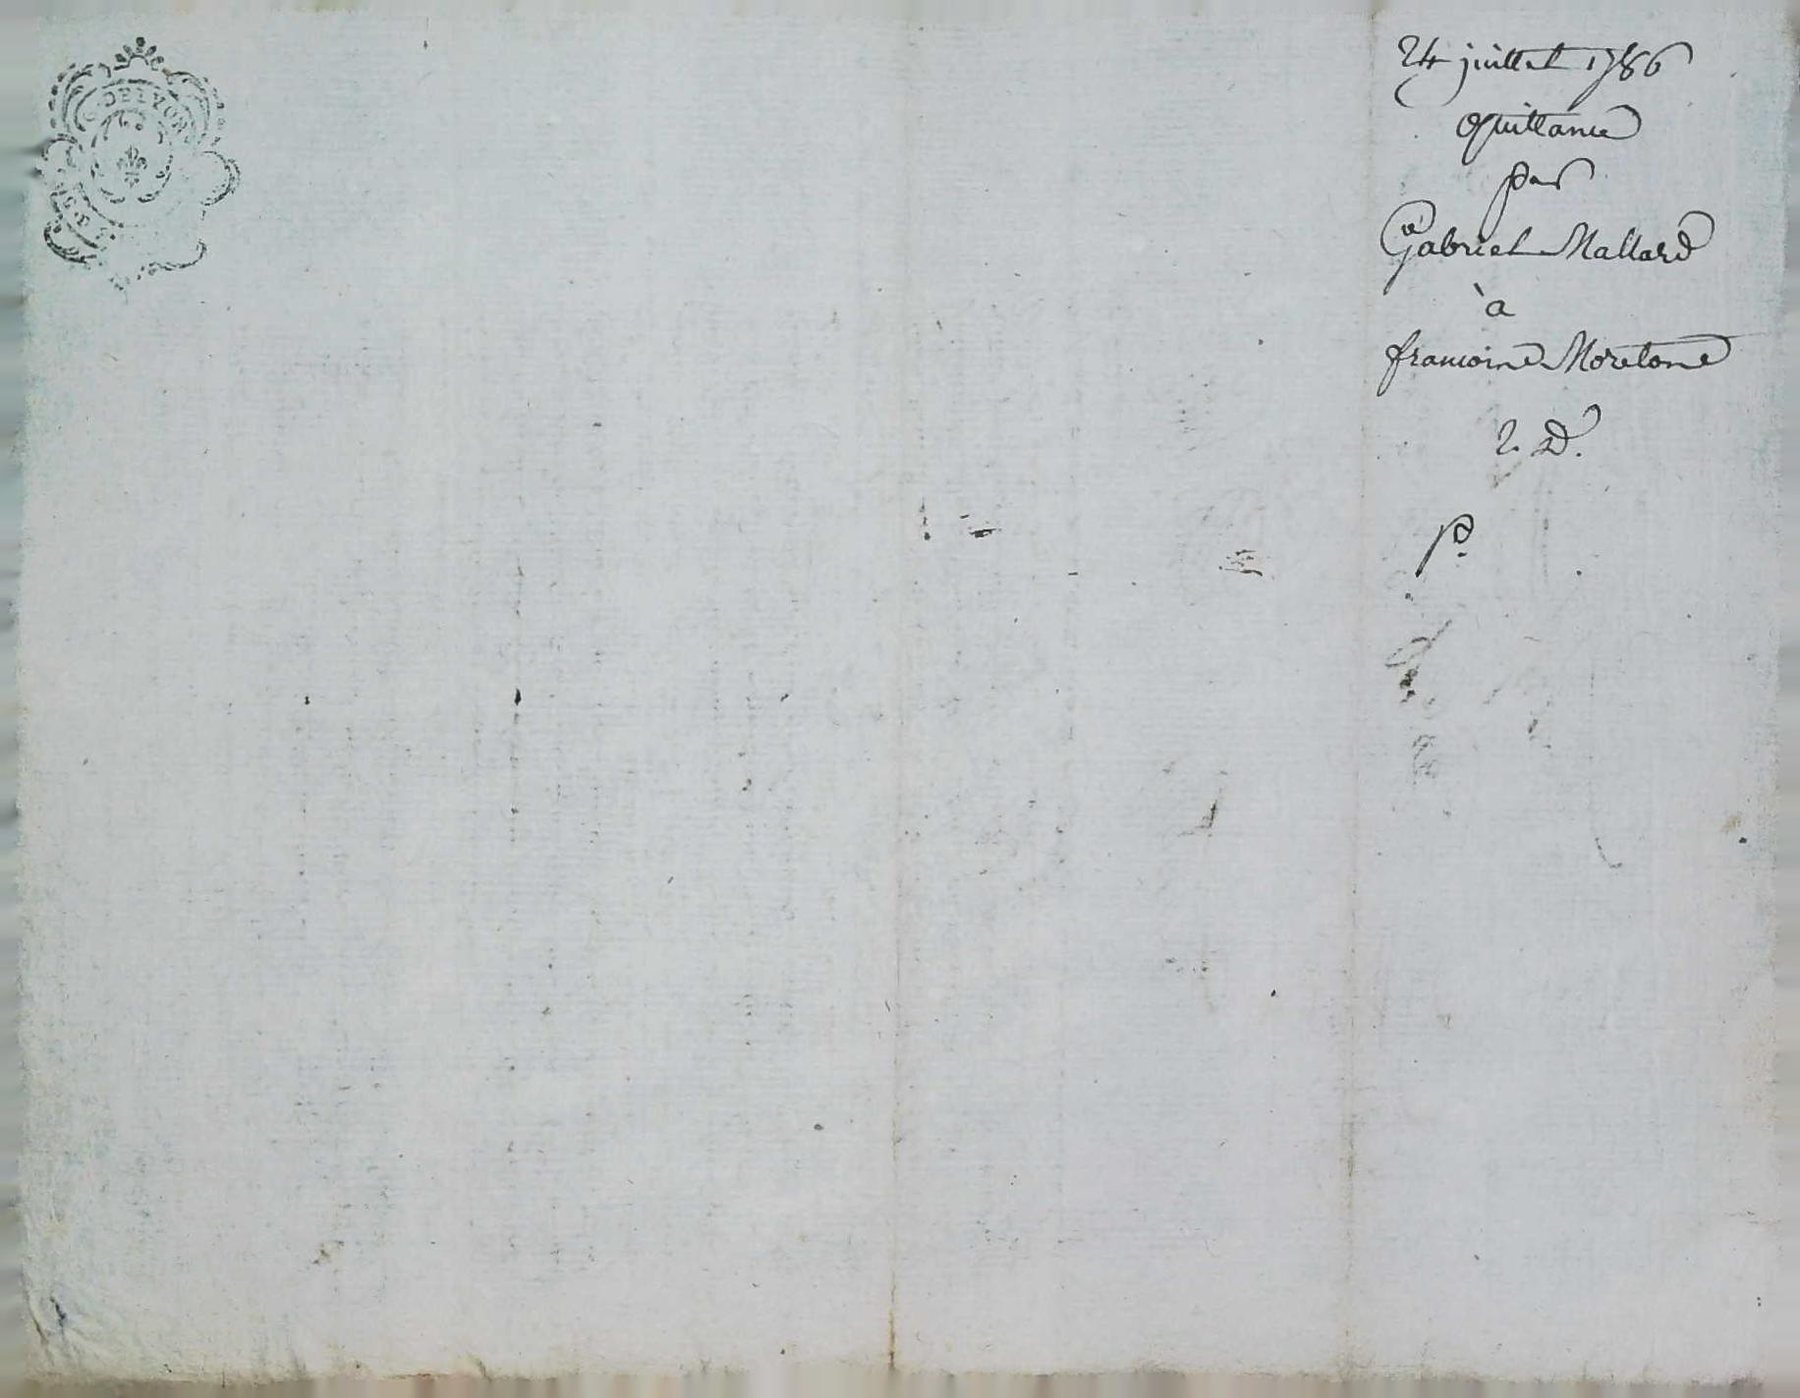 DE LYON
24 juillet 1786
Quittance
par
Gabriel Mallard
à
francoise Moretone
2. D.
P.